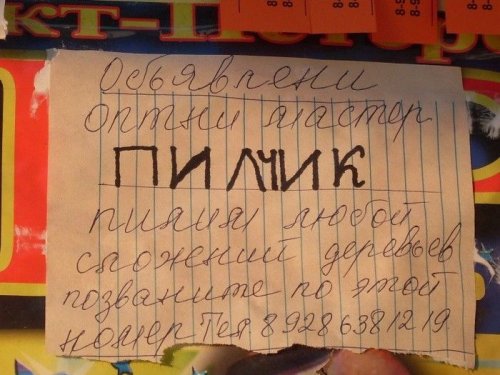 кт-Петер
Объявлени
оптни мастер
ПИЛЧИК
пилим любой
сложений деревьев
позваните по этой
номер Тел 8 928 638 12 19